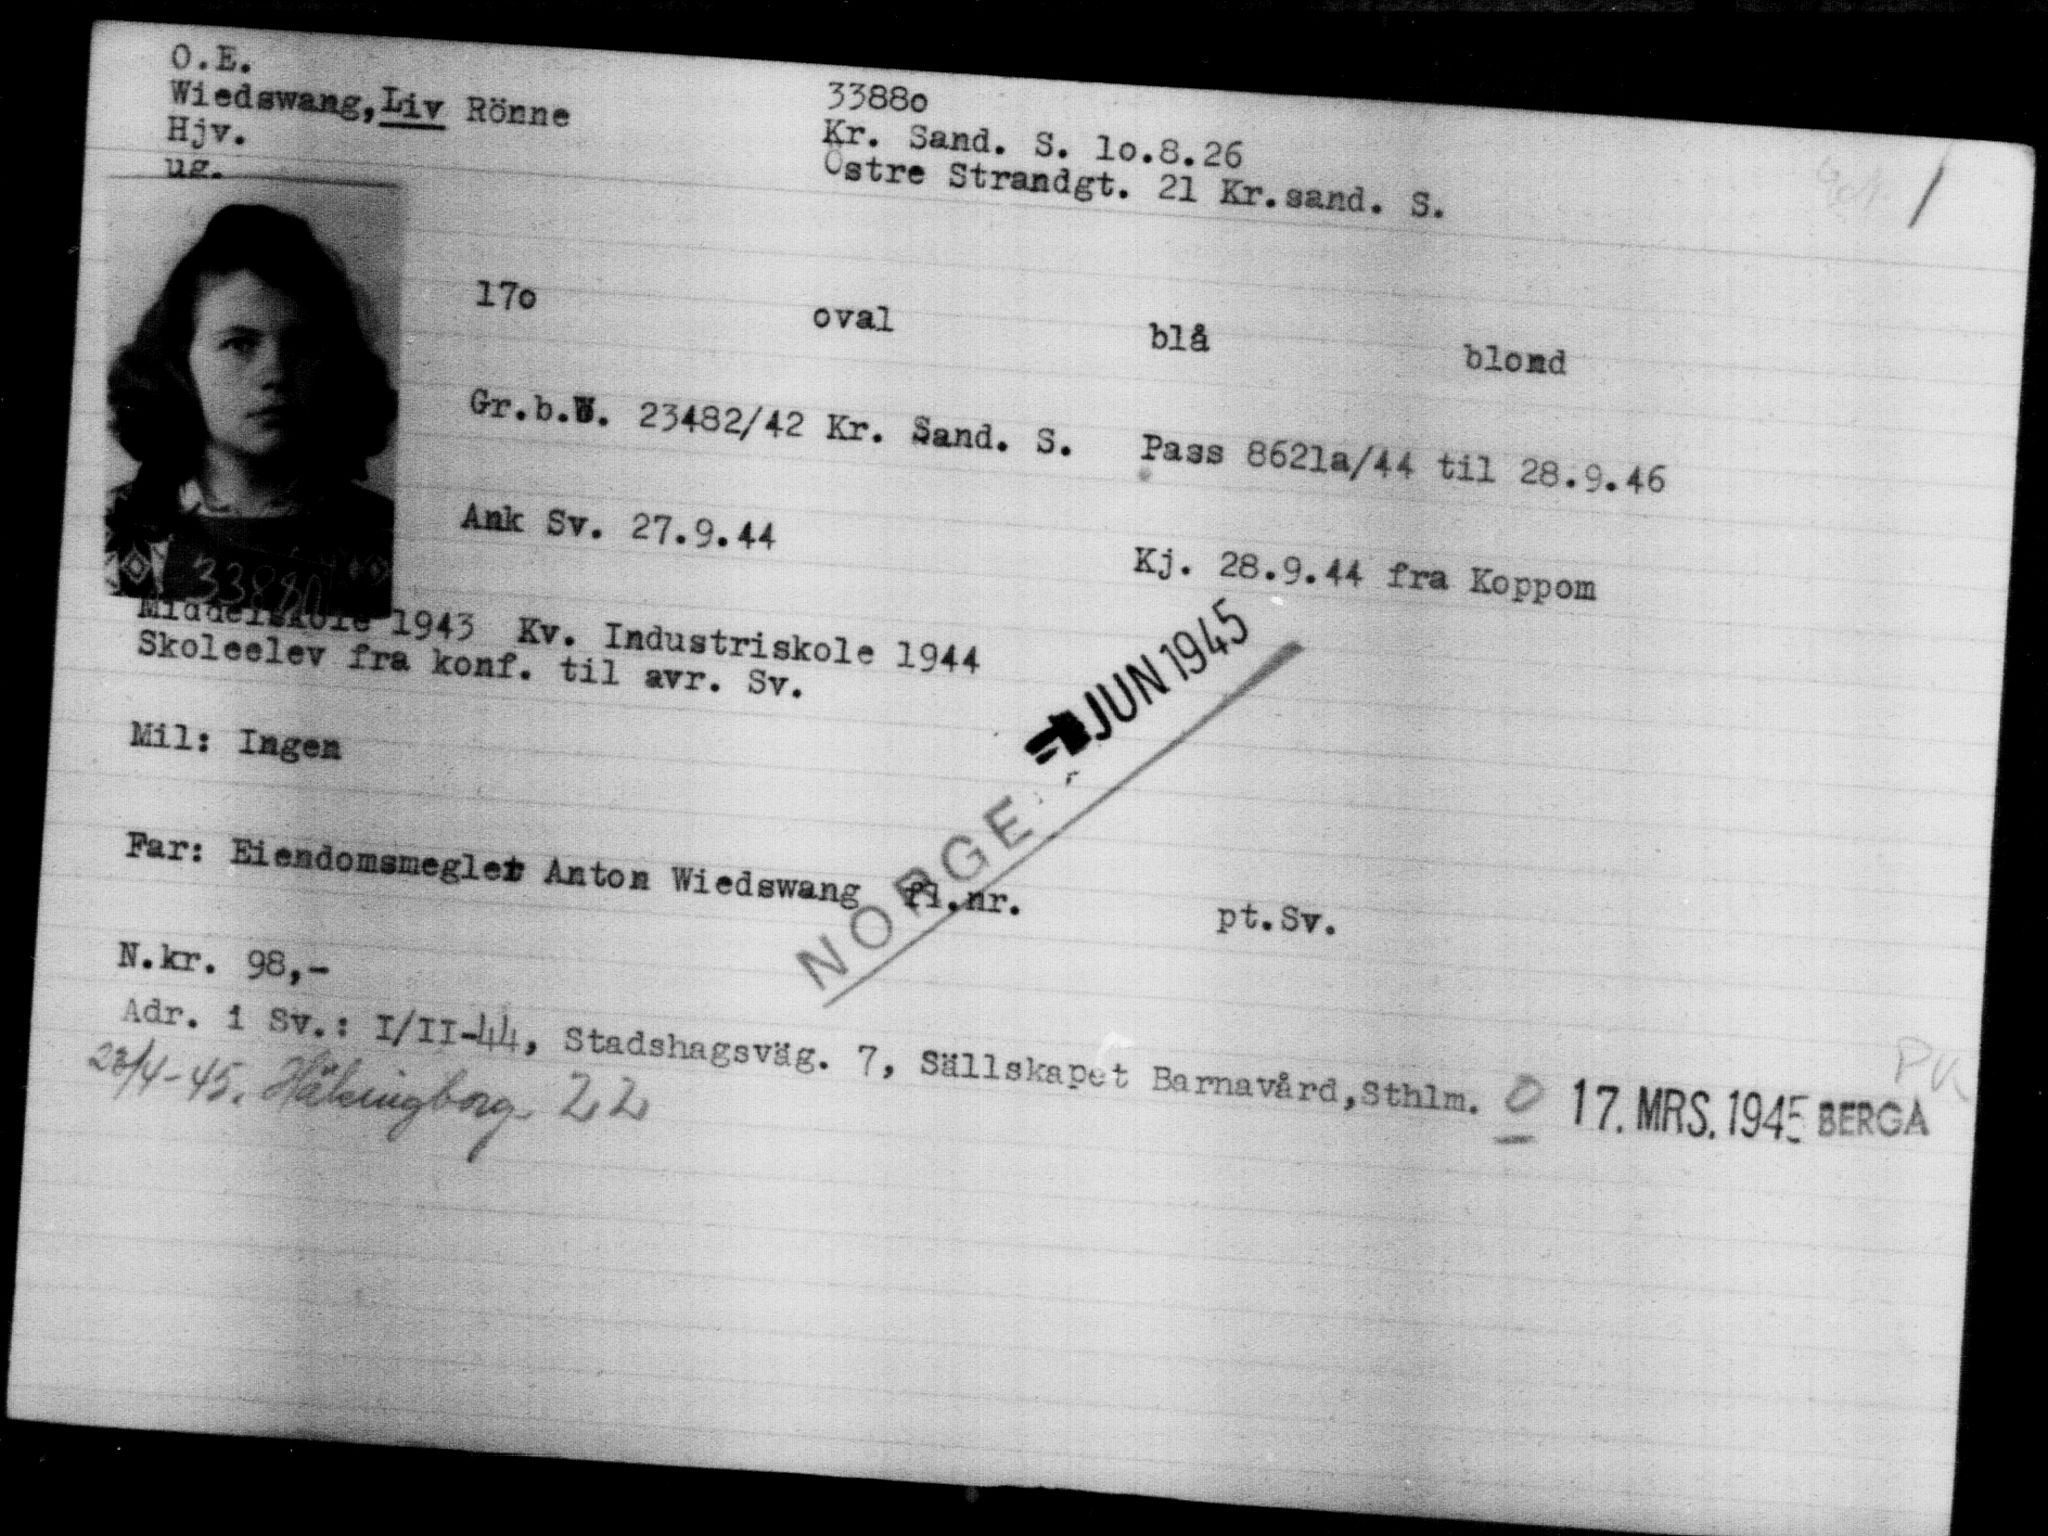 O.E.
Wiedswang, Liv Rönne
33880
Hjv.
Kr. Sand. S. 10.8.26
ug.
Östre Strandgt. 21 Kr.sand. S.
170 oval blå blond
Gr.b.W. 23482/42 Kr. Sand. S. Pass 8621a/44 til 28.9.46
Ank Sv. 27.9.44 Kj. 28.9.44 fra Koppom
33880
Middelskole 1943 Kv. Industriskole 1944
Skoleelev fra konf. til avr. Sv.
JUN 1945
Mil: Ingen
NORGE
Far: Eiendomsmegler Anton Wiedswang fl.nr. pt.Sv.
N.kr. 98,-
Adr. i Sv.: I/II-44, Stadshagsväg. 7, Sällskapet Barnavård, Sthlm. 0 17. MRS. 1945 BERGA
/4-45. Hälsingborg 22